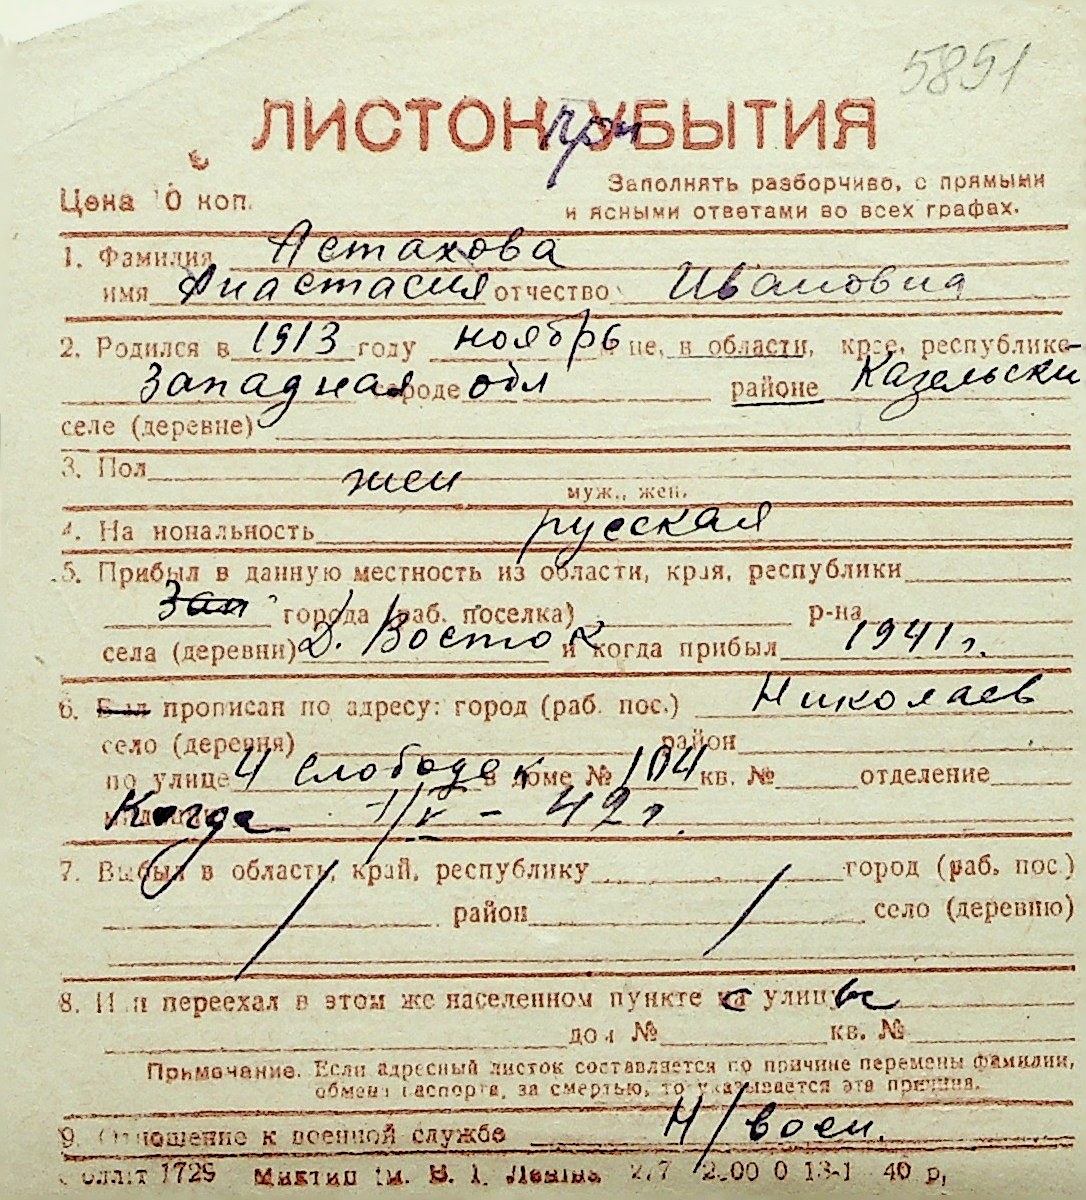 5851
ЛИСТОК при УБЫТИЯ
Цена 10 коп.
Заполнять разборчиво, с прямыми
и ясными ответами во всех графах.
1. Фамилия Астахова
имя Анастасия отчество Ивановна
2. Родился в 1913 году ноябрь м-це, в области, крае, республике
Западная городе обл районе Казельски
селе (деревне)
3. Пол жен
муж., жен.
4. Национальность русская
5. Прибыл в данную местность из области, края, республики
Зап города (раб. поселка) р-на
села (деревни) Д. Восток и когда прибыл 1941 г.
6. Был прописан по адресу: город (раб. пос.) Николаев
село (деревня) район
по улице 4 слободск в доме № 104 кв. № отделение
милиции Когда 1/V - 42 г.
7. Выбыл в область, край, республику город (раб. пос.)
район село (деревню)
8. Или переехал в этом же населенном пункте с улицы
дом № кв. №
Примечание. Если адресный листок составляется по причине перемены фамилии,
обмена паспорта, за смертью, то указывается эта причина.
9. Отношение к военной службе Н/воен.
1729 им. В. І. Леніна 40 р,